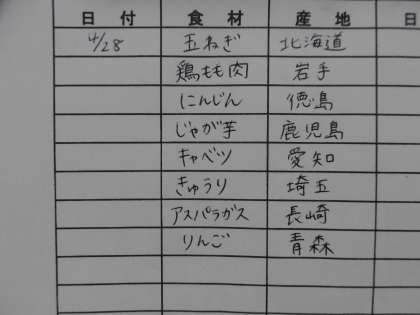 日 付 食 材 産 地 日
4/28 玉ねぎ 北海道
鶏もも肉 岩手
にんじん 徳島
じゃが芋 鹿児島
キャベツ 愛知
きゅうり 埼玉
アスパラガス 長崎
りんご 青森